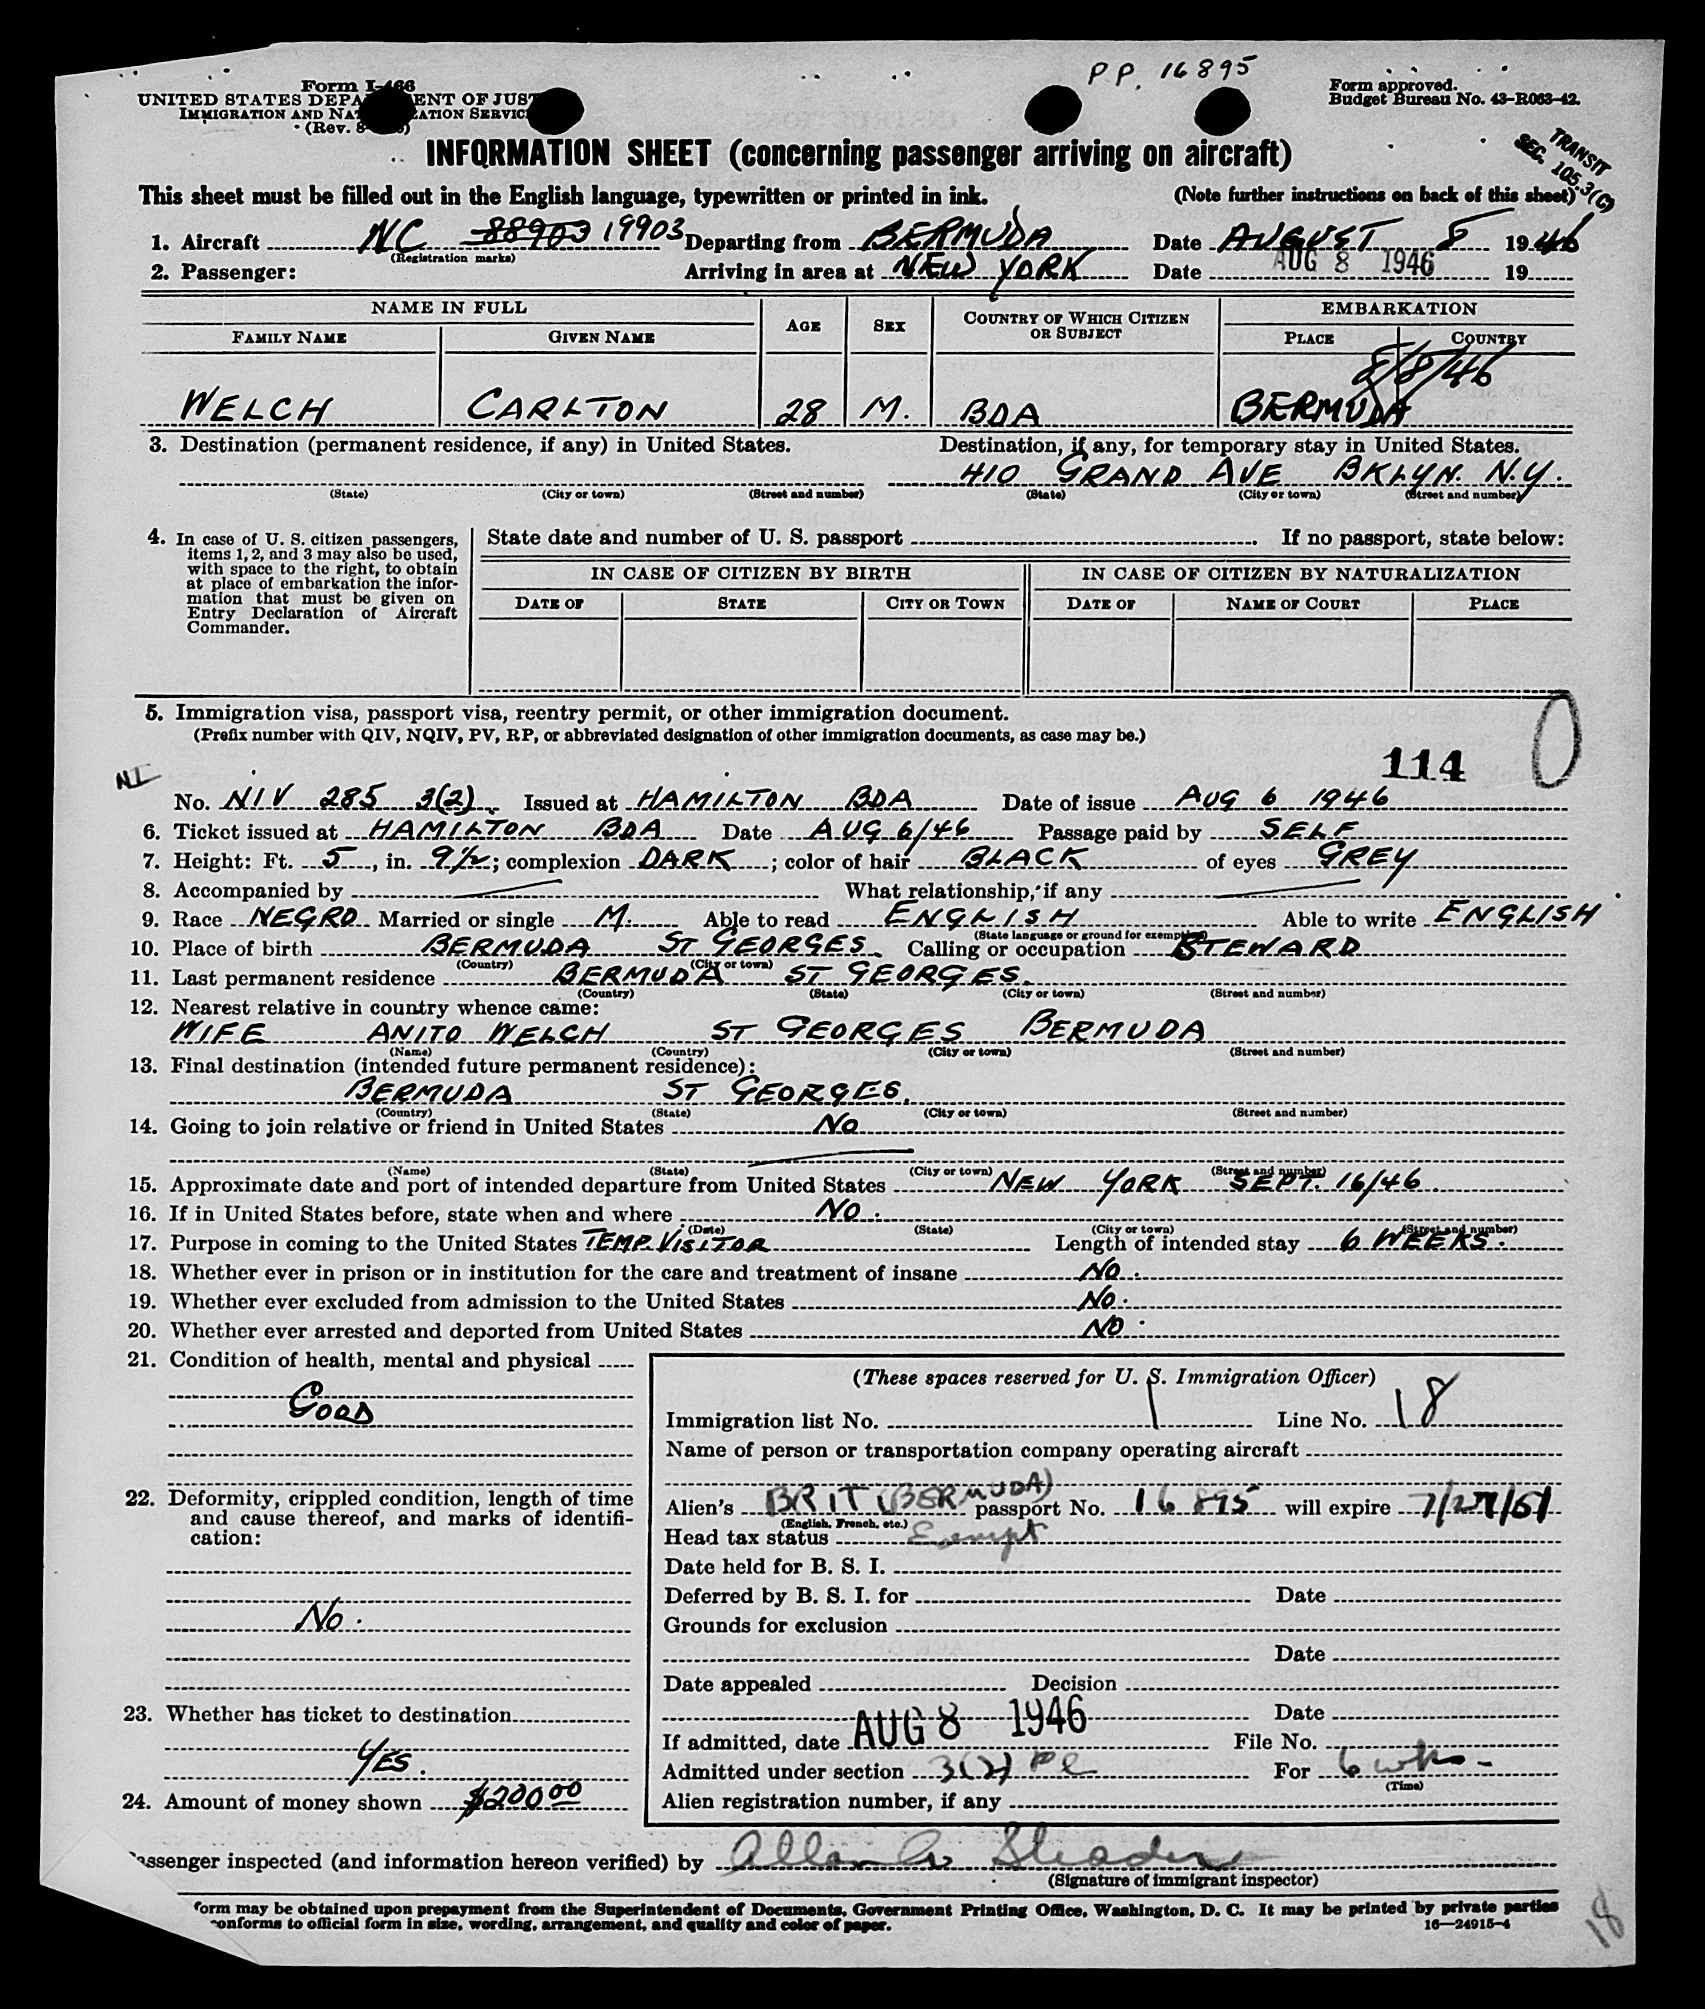 P.P. 16895
Form I-466
UNITED STATES DEPARTMENT OF JUSTICE
IMMIGRATION AND NATURALIZATION SERVICE
(Rev. 8
Form approved.
Budget Bureau No. 43-R063-42.
TRANSIT
SEC. 105.3(C)
INFORMATION SHEET (concerning passenger arriving on aircraft)
This sheet must be filled out in the English language, typewritten or printed in ink. (Note further instructions on back of this sheet)
1. Aircraft NC 88903 19903 Departing from BERMUDA Date AUGUST 8 1946
(Registration marks)
2. Passenger: Arriving in area at NEW YORK Date AUG 8 1946 19
NAME IN FULL EMBARKATION
FAMILY NAME GIVEN NAME AGE SEX COUNTRY OF WHICH CITIZEN OR SUBJECT PLACE COUNTRY
8/8/46
WELCH CARLTON 28 M. BDA BERMUDA
3. Destination (permanent residence, if any) in United States. Destination, if any, for temporary stay in United States.
410 GRAND AVE BKLYN. N.Y.
(State) (City or town) (Street and number) (State) (City or town) (Street and number)
4. In case of U. S. citizen passengers, items 1, 2, and 3 may also be used, with space to the right, to obtain at place of embarkation the information that must be given on Entry Declaration of Aircraft Commander.
State date and number of U. S. passport If no passport, state below:
IN CASE OF CITIZEN BY BIRTH IN CASE OF CITIZEN BY NATURALIZATION
DATE OF STATE CITY OR TOWN DATE OF NAME OF COURT PLACE
5. Immigration visa, passport visa, reentry permit, or other immigration document.
(Prefix number with QIV, NQIV, PV, RP, or abbreviated designation of other immigration documents, as case may be.)
114
NI
No. NIV 285 3(2) Issued at HAMILTON BDA Date of issue AUG 6 1946
6. Ticket issued at HAMILTON BDA Date AUG 6/46 Passage paid by SELF
7. Height: Ft. 5, in. 9½; complexion DARK; color of hair BLACK of eyes GREY
8. Accompanied by What relationship, if any
9. Race NEGRO Married or single M. Able to read ENGLISH Able to write ENGLISH
(State language or ground for exemption)
10. Place of birth BERMUDA ST GEORGES. Calling or occupation STEWARD
(Country) (City or town)
11. Last permanent residence BERMUDA ST GEORGES.
(Country) (State) (City or town) (Street and number)
12. Nearest relative in country whence came:
WIFE ANITO WELCH ST GEORGES BERMUDA
(Name) (Country) (City or town) (Street and number)
13. Final destination (intended future permanent residence):
BERMUDA ST GEORGES.
(Country) (State) (City or town) (Street and number)
14. Going to join relative or friend in United States NO
(Name) (State) (City or town) (Street and number)
15. Approximate date and port of intended departure from United States NEW YORK SEPT. 16/46
16. If in United States before, state when and where NO.
(Date) (State) (City or town) (Street and number)
17. Purpose in coming to the United States TEMP. VISITOR Length of intended stay 6 WEEKS.
18. Whether ever in prison or in institution for the care and treatment of insane NO.
19. Whether ever excluded from admission to the United States NO.
20. Whether ever arrested and deported from United States NO.
21. Condition of health, mental and physical
GOOD
22. Deformity, crippled condition, length of time and cause thereof, and marks of identification:
NO.
23. Whether has ticket to destination
YES.
24. Amount of money shown $200 00
(These spaces reserved for U. S. Immigration Officer)
Immigration list No. 1 Line No. 18
Name of person or transportation company operating aircraft
Alien's BRIT (BERMUDA) passport No. 16895 will expire 7/27/51
(English, French, etc.)
Head tax status Exempt
Date held for B. S. I.
Deferred by B. S. I. for Date
Grounds for exclusion
Date
Date appealed Decision
Date
If admitted, date AUG 8 1946 File No.
Admitted under section 3(2) For 6 wks -
(Time)
Alien registration number, if any
Passenger inspected (and information hereon verified) by Allan
(Signature of immigrant inspector)
form may be obtained upon prepayment from the Superintendent of Documents, Government Printing Office, Washington, D. C. It may be printed by private parties
conforms to official form in size, wording, arrangement, and quality and color of paper. 16—24915-4
18